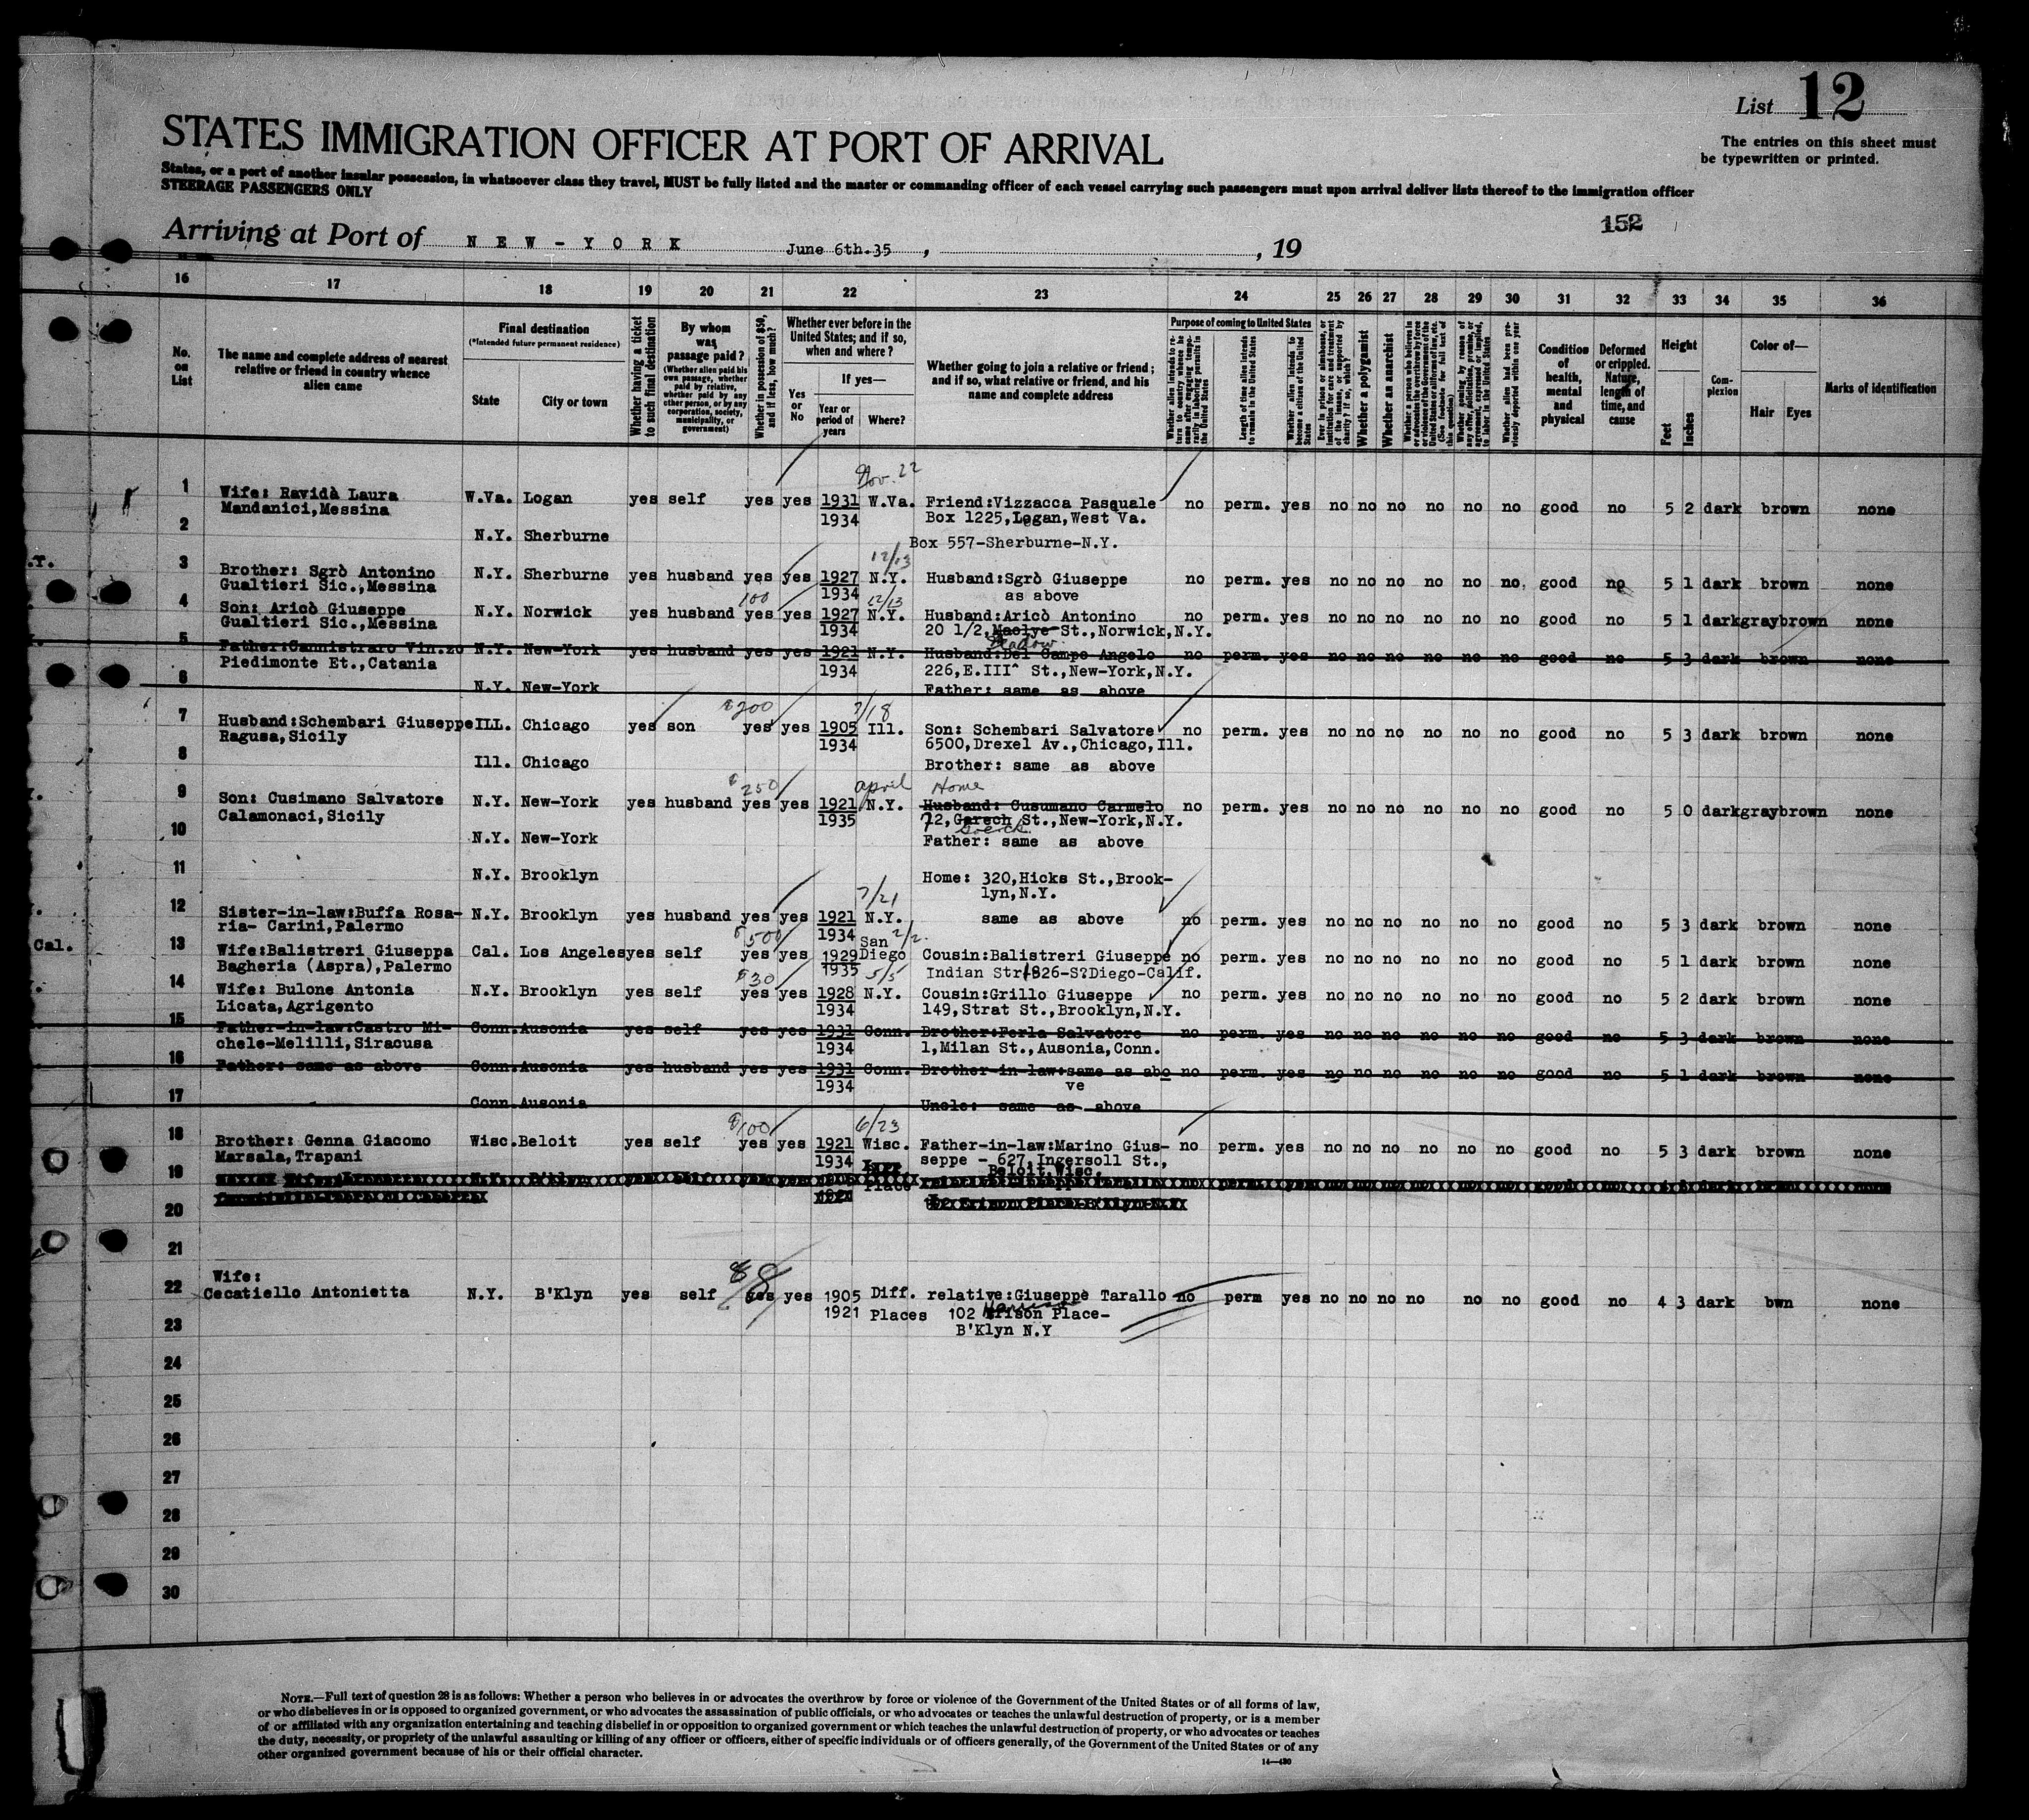 List 12
STATES IMMIGRATION OFFICER AT PORT OF ARRIVAL
The entries on this sheet must
be typewritten or printed.
States, or a port of another insular possession, in whatsoever class they travel, MUST be fully listed and the master or commanding officer of each vessel carrying such passengers must upon arrival deliver lists thereof to the immigration officer
STEERAGE PASSENGERS ONLY
152
Arriving at Port of NEW-YORK June 6th.35, , 19
16 17 18 19 20 21 22 23 24 25 26 27 28 29 30 31 32 33 34 35 36
No. on List
The name and complete address of nearest relative or friend in country whence alien came
Final destination
(*Intended future permanent residence)
State
City or town
Whether having a ticket to such final destination
By whom was passage paid?
(Whether alien paid his own passage, whether paid by relative, whether paid by any other person, or by any corporation, society, municipality, or government)
Whether in possession of $50, and if less, how much?
Whether ever before in the United States; and if so, when and where?
Yes or No
If yes—
Year or period of years
Where?
Whether going to join a relative or friend; and if so, what relative or friend, and his name and complete address
Purpose of coming to United States
Length of time alien intends to remain in the United States
Whether alien intends to become a citizen of the United States
Whether a polygamist
Whether an anarchist
Whether alien had been previously deported within one year
Condition of health, mental and physical
Deformed or crippled. Nature, length of time, and cause
Height
Feet
Inches
Complexion
Color of—
Hair Eyes
Marks of identification
Nov. 22
1 Wife: Ravidà Laura W.Va. Logan yes self yes yes 1931 W.Va. Friend:Vizzacca Pasquale no perm. yes no no no no no no good no 5 2 dark brown none
Mandanici,Messina 1934 Box 1225,Logan,West Va.
2 N.Y. Sherburne Box 557-Sherburne-N.Y.
12/13
3 Brother: Sgrò Antonino N.Y. Sherburne yes husband yes yes 1927 N.Y. Husband:Sgrò Giuseppe no perm. yes no no no no no no. good no 5 1 dark brown none
Gualtieri Sic.,Messina 1934 as above
100 12/13
4 Son: Aricò Giuseppe N.Y. Norwick yes husband yes yes 1927 N.Y. Husband:Aricò Antonino no perm. yes no no no no no no good no 5 1 dark gray brown none
Gualtieri Sic.,Messina 1934 20 1/2, St.,Norwick,N.Y.
5 Father:Cannistraro Vin.zo N.Y. New-York yes husband yes yes 1921 N.Y. Husband:Del Campo Angelo no perm. yes no no no no no no good no 5 3 dark brown none
Piedimonte Et.,Catania 1934 226,E.III^ St.,New-York,N.Y.
6 N.Y. New-York Father: same as above
$200 7/18
7 Husband:Schembari Giuseppe ILL. Chicago yes son yes yes 1905 Ill. Son: Schembari Salvatore no perm. yes no no no no no no good no 5 3 dark brown none
Ragusa,Sicily 1934 6500,Drexel Av.,Chicago,Ill.
8 Ill. Chicago Brother: same as above
$250 april Home
9 Son: Cusimano Salvatore N.Y. New-York yes husband yes yes 1921 N.Y. Husband: Cusumano Carmelo no perm. yes no no no no no no good no 5 0 dark gray brown none
Calamonaci,Sicily 1935 72,Garech St.,New-York,N.Y.
Goerck
10 N.Y. New-York Father: same as above
11 N.Y. Brooklyn Home: 320,Hicks St.,Brook-
lyn,N.Y.
7/21
12 Sister-in-law:Buffa Rosa- N.Y. Brooklyn yes husband yes yes 1921 N.Y. same as above no perm. yes no no no no no no good no 5 3 dark brown none
ria- Carini,Palermo 1934
$500 2/2
13 Wife:Balistreri Giuseppa Cal. Los Angeles yes self yes yes 1929 San Diego Cousin:Balistreri Giuseppe no perm. yes no no no no no no good no 5 1 dark brown none
Bagheria (Aspra),Palermo 1935 Indian Str1826-S?Diego-Calif.
$30 5/5
14 Wife: Bulone Antonia N.Y. Brooklyn yes self yes yes 1928 N.Y. Cousin:Grillo Giuseppe no perm. yes no no no no no no good no 5 2 dark brown none
Licata,Agrigento 1934 149,Strat St.,Brooklyn,N.Y.
15 Father-in-law:Castro Mi- Conn. Ausonia yes self yes yes 1931 Conn. Brother:Perla Salvatore no perm. yes no no no no no no good no 5 3 dark brown none
chele-Melilli,Siracusa 1934 1,Milan St.,Ausonia,Conn.
16 Father: same as above Conn. Ausonia yes husband yes yes 1931 Conn. Brother-in-law:same as abo no perm. yes no no no no no no good no 5 1 dark brown none
1934 ve
17 Conn. Ausonia Uncle: same as above
$100 6/23
18 Brother: Genna Giacomo Wisc. Beloit yes self yes yes 1921 Wisc. Father-in-law:Marino Gius- no perm. yes no no no no no no good no 5 3 dark brown none
Marsala,Trapani 1934 seppe - 627,Ingersoll St.,
Beloit,Wisc.
19
20
21
22 Wife:
Cecatiello Antonietta N.Y. B'Klyn yes self yes yes 1905 Diff. relative:Giuseppè Tarallo no perm yes no no no no no no good no 4 3 dark bwn none
1921 Places 102 Place-
23 B'Klyn N.Y
24
25
26
27
28
29
30
Cal.
NOTE.—Full text of question 28 is as follows: Whether a person who believes in or advocates the overthrow by force or violence of the Government of the United States or of all forms of law,
or who disbelieves in or is opposed to organized government, or who advocates the assassination of public officials, or who advocates or teaches the unlawful destruction of property, or is a member
of or affiliated with any organization entertaining and teaching disbelief in or opposition to organized government or which teaches the unlawful destruction of property, or who advocates or teaches
the duty, necessity, or propriety of the unlawful assaulting or killing of any officer or officers, either of specific individuals or of officers generally, of the Government of the United States or of any
other organized government because of his or their official character.
14—430